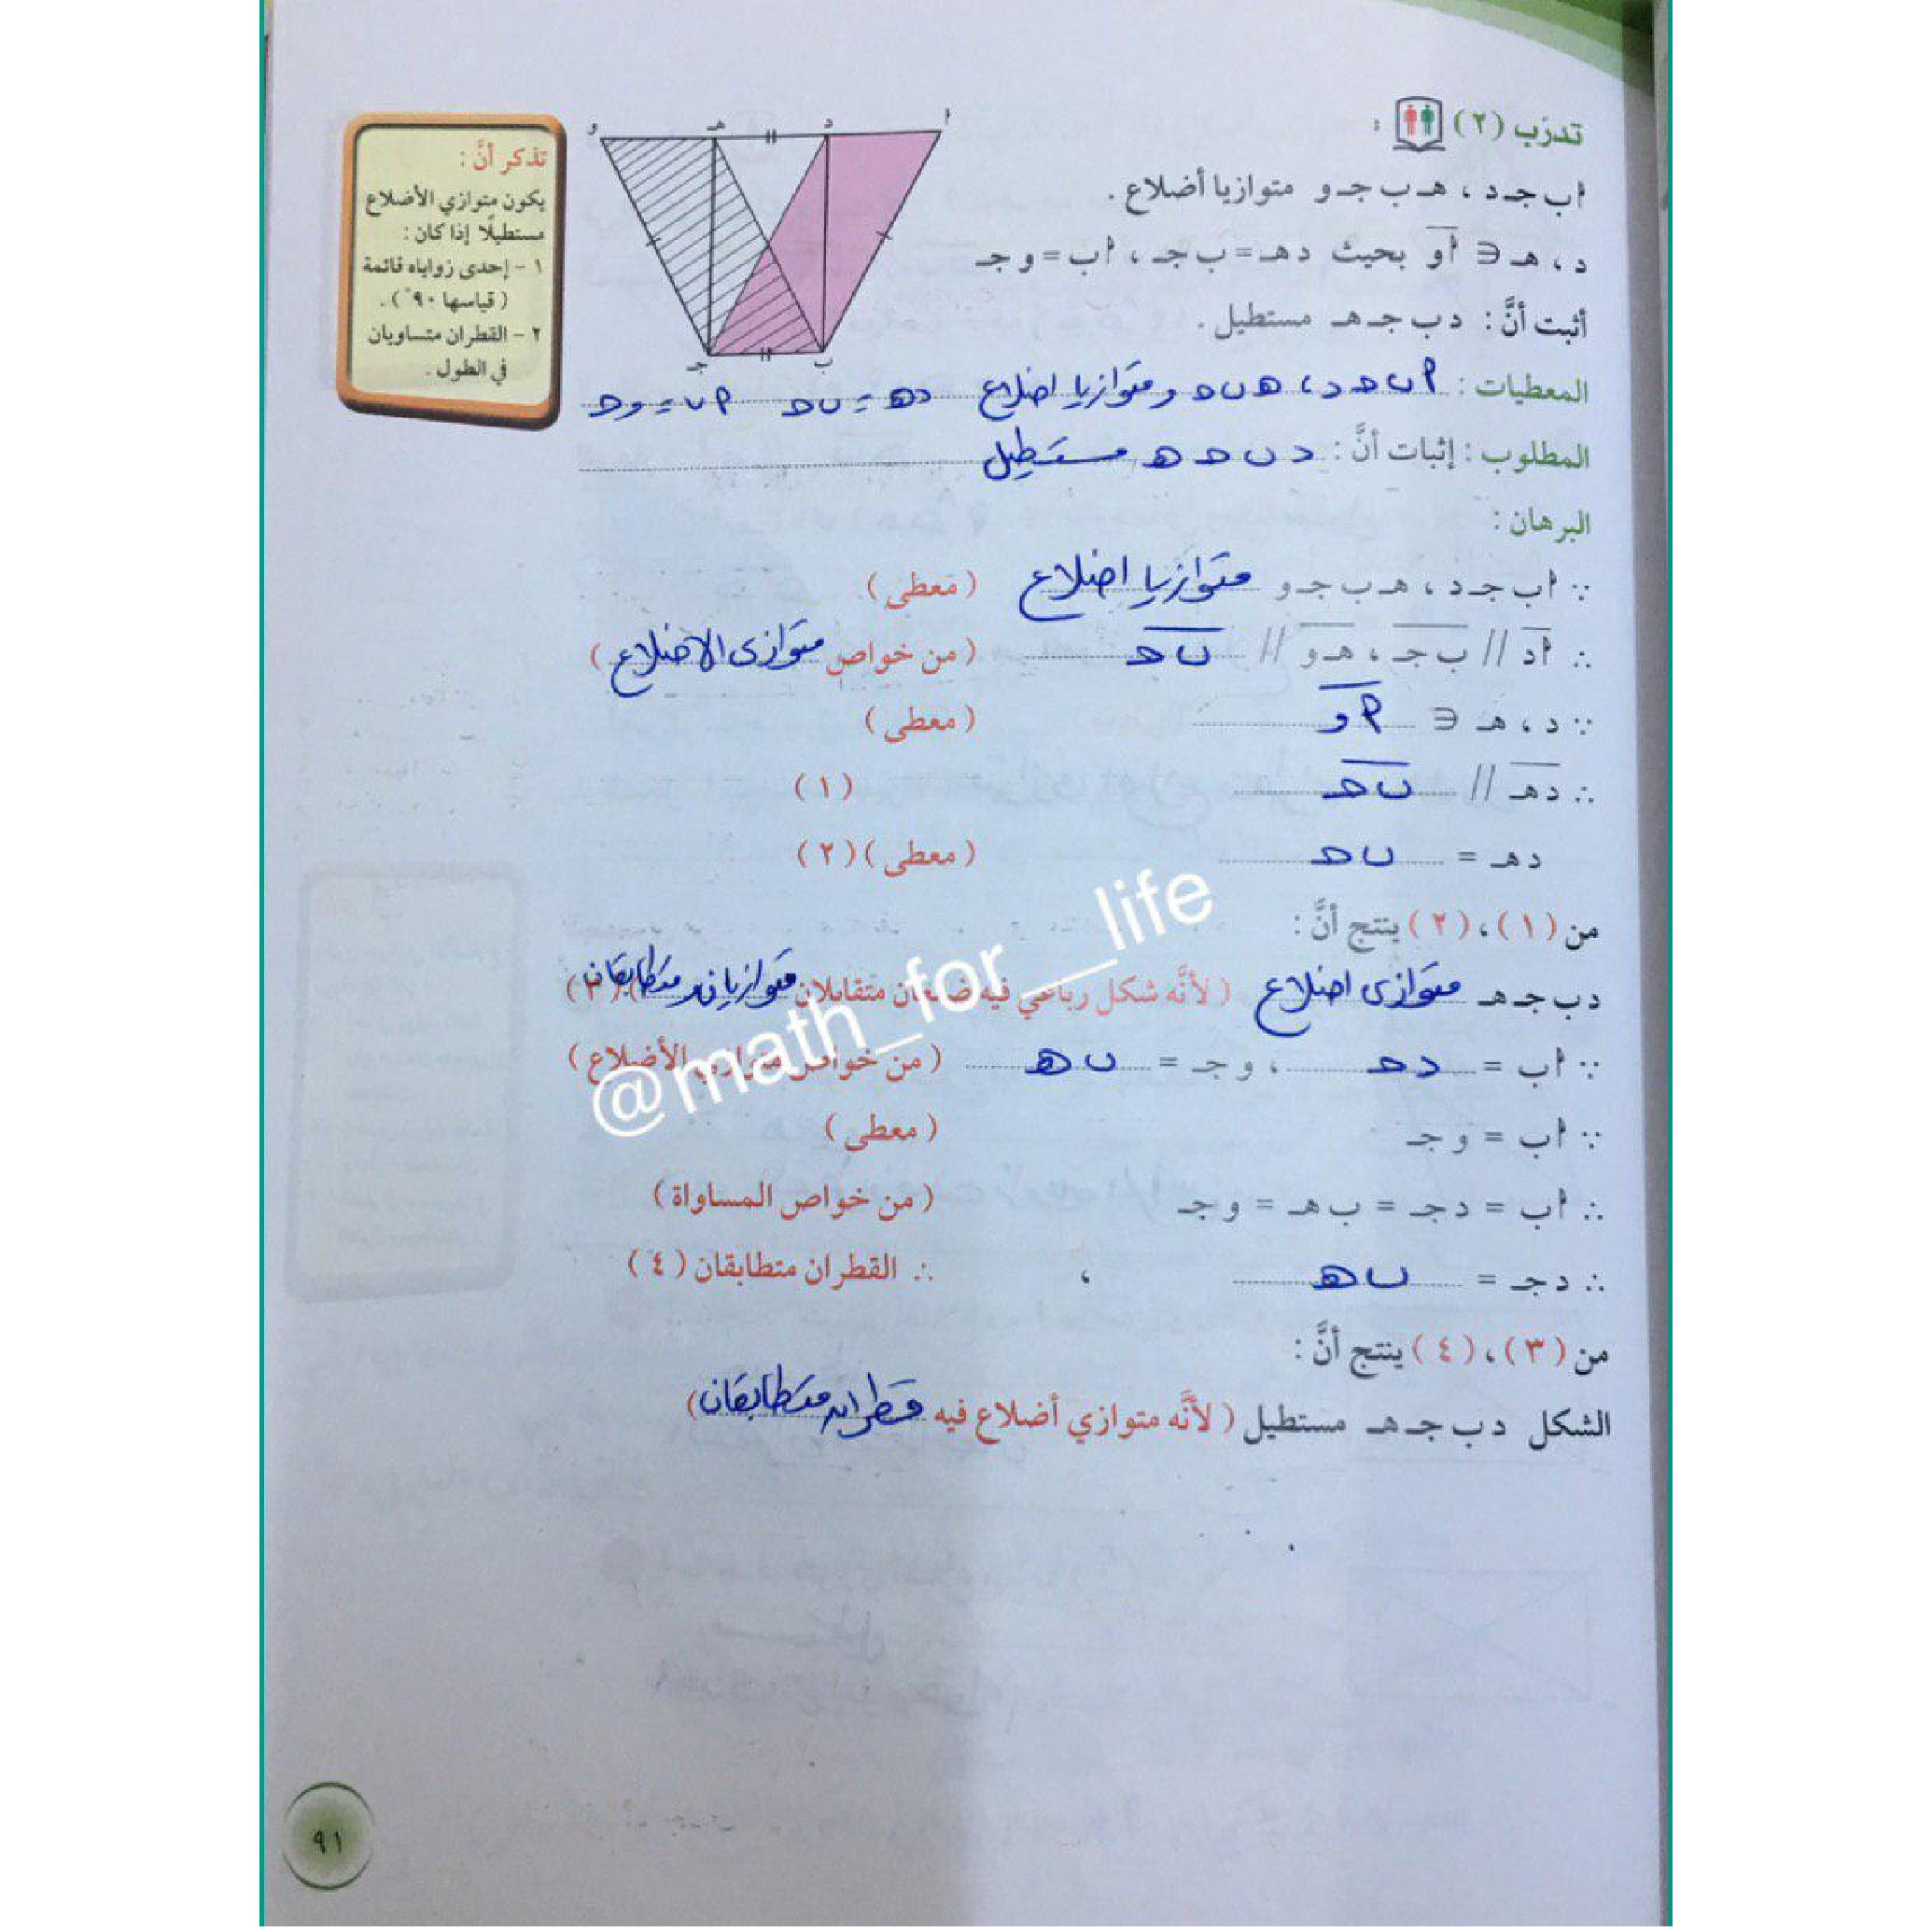 تدرّب (٢) :
ا ب جـ د ، هـ ب جـ و متوازيا أضلاع .
د ، هـ ∋ ا و بحيث د هـ = ب جـ ، ا ب = و جـ
أثبت أنَّ : د ب جـ هـ مستطيل .
المعطيات : ا ب حـ د ، هـ ب حـ و متوازيا اضلاع د هـ = ب حـ ا ب = و حـ
المطلوب : إثبات أنَّ : د ب حـ هـ مستطيل
البرهان :
∵ ا ب جـ د ، هـ ب جـ و متوازيا اضلاع ( معطى )
∴ ا د // ب جـ ، هـ و // ب حـ ( من خواص متوازى الاضلاع )
∵ د ، هـ ∋ ا و ( معطى )
∴ د هـ // ب حـ ( ١ )
د هـ = ب حـ ( معطى ) ( ٢ )
من ( ١ ) ، ( ٢ ) ينتج أنَّ :
د ب جـ هـ متوازى اضلاع ( لأنَّه شكل رباعي فيه ضلعان متقابلان متوازيان و متطابقان ) ( ٣ )
∵ ا ب = د حـ ، و جـ = ب هـ ( من خواص متوازي الأضلاع )
∵ ا ب = و جـ ( معطى )
∴ ا ب = د جـ = ب هـ = و جـ ( من خواص المساواة )
∴ د جـ = ب هـ ، ∴ القطران متطابقان ( ٤ )
من ( ٣ ) ، ( ٤ ) ينتج أنَّ :
الشكل د ب جـ هـ مستطيل ( لأنَّه متوازي أضلاع فيه قطران متطابقان )
تذكر أنَّ :
يكون متوازي الأضلاع
مستطيلًا إذا كان :
١ - إحدى زواياه قائمة
( قياسها ٩٠° ) .
٢ - القطران متساويان
في الطول .
و هـ د ا
جـ ب
@math__for__life
٩١